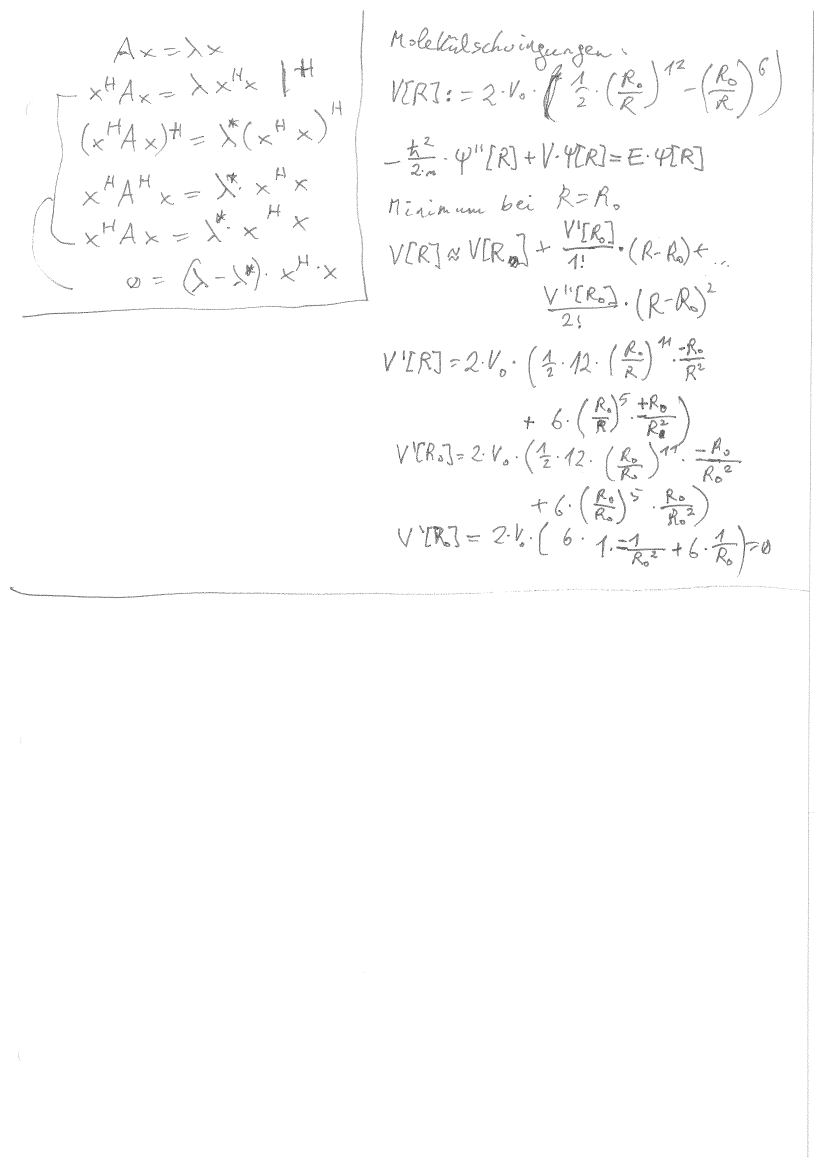 Ax = λx
x^H Ax = λ x^H x |^H
(x^H Ax)^H = λ* (x^H x)^H
x^H A^H x = λ* · x^H x
x^H A x = λ* · x^H x
0 = (λ - λ*) · x^H · x
Molekülschwingungen:
V[R] := 2 · V₀ · (1/2 · (R₀/R)^12 - (R₀/R)^6)
- ℏ²/(2·m) · Ψ''[R] + V·Ψ[R] = E·Ψ[R]
Minimum bei R = R₀
V[R] ≈ V[R₀] + V'[R₀]/1! · (R-R₀) + ...
V''[R₀]/2! · (R-R₀)²
V'[R] = 2·V₀ · (1/2 · 12 · (R₀/R)^11 · -R₀/R²
+ 6 · (R₀/R)^5 · +R₀/R²)
V'[R₀] = 2·V₀ · (1/2 · 12 · (R₀/R₀)^11 · -R₀/R₀²
+ 6 · (R₀/R₀)^5 · R₀/R₀²)
V'[R₀] = 2·V₀ · (6 · 1 · -1/R₀² + 6 · 1/R₀) = 0